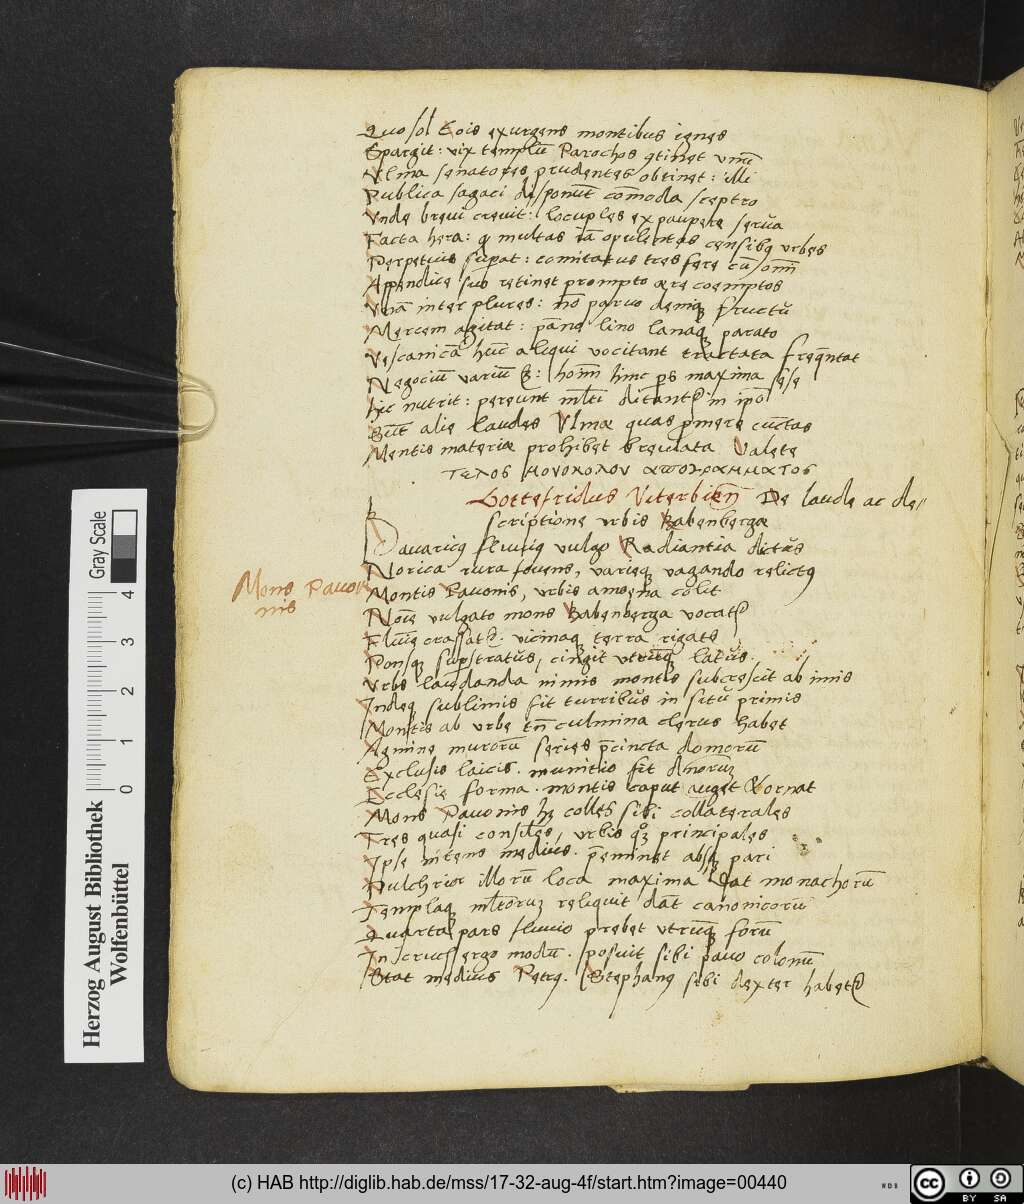 Quo sol Eois exurgens montibus ignes
Spargit: vix templū Parochos ꝯtinet vnū
Vlma senatores prudentes obtinet: illi
Publica sagaci disponūt cōmoda sceptro
Vnde breui creuit: locuples ex paupere serua
Facta hera: q̄ multas iā opulentas censibꝫ vrbes
Perpetuis suꝑat: comitatus tres fere cū
Appendice sub retinet prompto ære coemptos
Vnā inter plures: nō paruo deniqꝫ fructū
Mercem agitat: pāno lino lanaqꝫ parato
Vescanicā hūc aliqui vocitant tractata freq̄ntat
Negociū variū hinc ps maxima sese
hic nutrit: pereunt ml̄ti ditant in ip̄o
Sūt alie laudes Vlmæ quas ꝓmere cūctas
Mentis materiæ prohibet breuiata Valete
ΤΕΛΟΣ ΜΟΝΟΚΟΛΟΥ ΑΠΟΓΡΑΜΜΑΤΟΣ
Gottefridus Viterbien̄ De laude ac de-
scriptione vrbis Babenbergæ
Bauaricꝰ fluuiꝰ vulgo Radiantia dictus
Norica rura fouens, varieqꝫ vagando relictꝰ
Mons Pauo-
nis
Montis Pauonis, vrbis amœna colit
Noīe vulgato mons Babenberga vocat
vicinaqꝫ terra rigat
Ponsqꝫ suꝑstratus, cingit vtrūqꝫ latus.
Vrbs laudanda nimis montis subcrescit ab imis
Indeqꝫ sublimis fit turribus in situ primis
Montis ab vrbe tn̄ culmina clerus habet
Agmine murorū series p̄cincta domorū
Exclusis laicis. munitio fit dn̄orū
Ecclesie forma. montis caput auget & ornat
Mons Pauonis hꝫ colles sibi collaterales
Tres quasi consules, vrbis principales
Ipse nitens medius. p̄eminet absqꝫ pari
Pulchrior illorū loca maxima dat monachorū
Templaqꝫ ml̄torū reliquit dat canonicorū
Quarta pars fluuio prebet vtrūqꝫ forū
In crucis ergo modū. posuit sibi pauo colonū
Stat medius Petrꝰ. Stephanꝰ sibi dexter habet
Herzog August Bibliothek
Wolfenbüttel
Gray Scale
0 1 2 3 4
(c) HAB http://diglib.hab.de/mss/17-32-aug-4f/start.htm?image=00440
cc BY SA